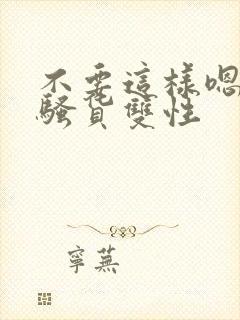 不要這樣嗯
騷貨雙性
寧蕪